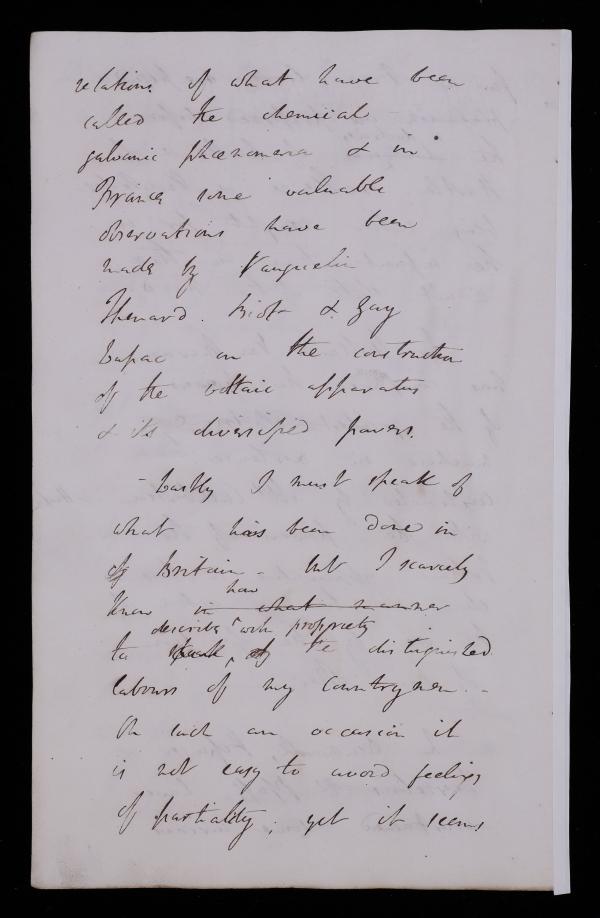 relations of what have been
called the chemical -
galvanic phænomena & in
France some valuable
observations have been
made by Vauquelin
Thenard. Biot & Gay
Lussac on the construction
of the voltaic apparatus
& its diversified powers.
- Lastly I must speak of
what has been done in
of Britain - but I scarcely
how
know in what manner
describe with propriety
to speak of the distinguished
labours of my countrymen. -
On such an occasion it
is not easy to avoid feelings
of partiality; yet it seems